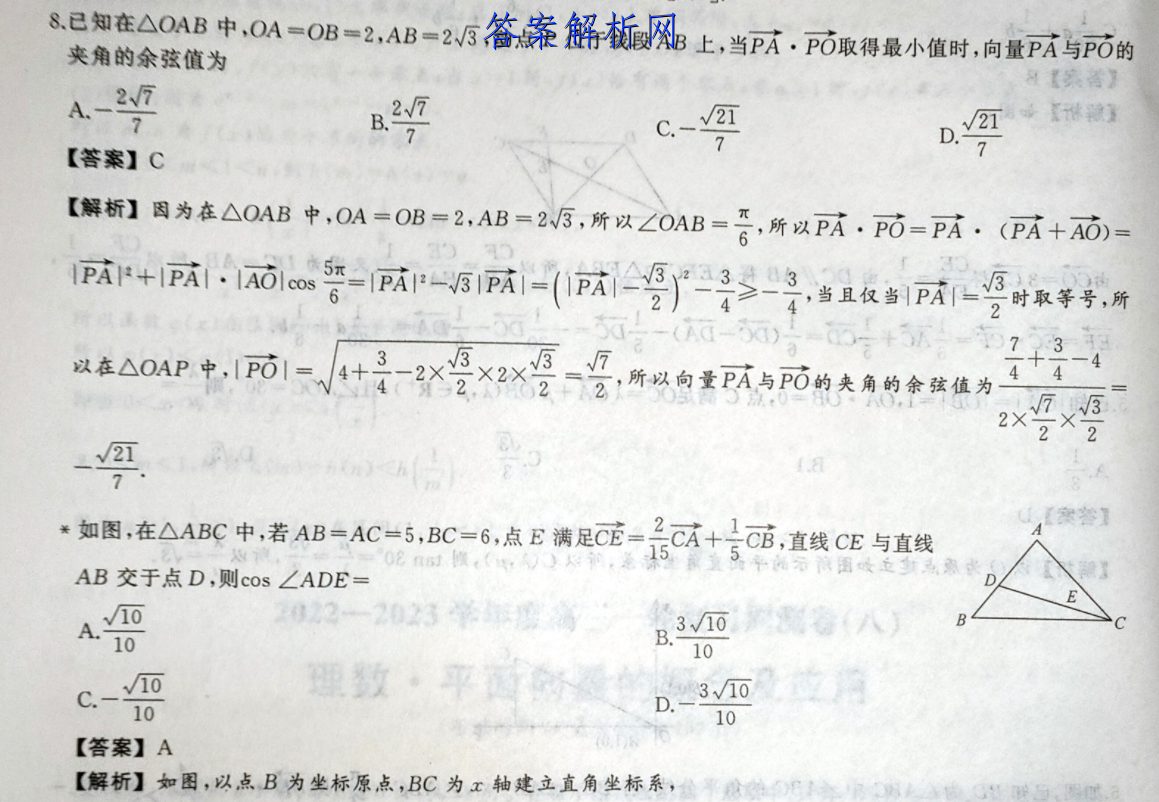 8.已知在△OAB 中,OA=OB=2,AB=2√3,
答案解析网
上,当PA·PO取得最小值时,向量PA与PO的
夹角的余弦值为
A.-2√7/7 B.2√7/7 C.-√21/7 D.√21/7
【答案】C
【解析】因为在△OAB 中,OA=OB=2,AB=2√3,所以∠OAB=π/6,所以PA·PO=PA·(PA+AO)=
|PA|²+|PA|·|AO|cos 5π/6=|PA|²-√3|PA|=(|PA|-√3/2)²-3/4≥-3/4,当且仅当|PA|=√3/2时取等号,所
以在△OAP中,|PO|=√(4+3/4-2×√3/2×2×√3/2)=√7/2,所以向量PA与PO的夹角的余弦值为(7/4+3/4-4)/(2×√7/2×√3/2)=
-√21/7.
* 如图,在△ABC 中,若 AB=AC=5,BC=6,点 E 满足CE=2/15CA+1/5CB,直线 CE 与直线
AB 交于点 D,则cos ∠ADE=
A
D
E
B
C
A.√10/10 B.3√10/10
C.-√10/10 D.-3√10/10
【答案】A
【解析】如图,以点 B 为坐标原点,BC 为 x 轴建立直角坐标系,